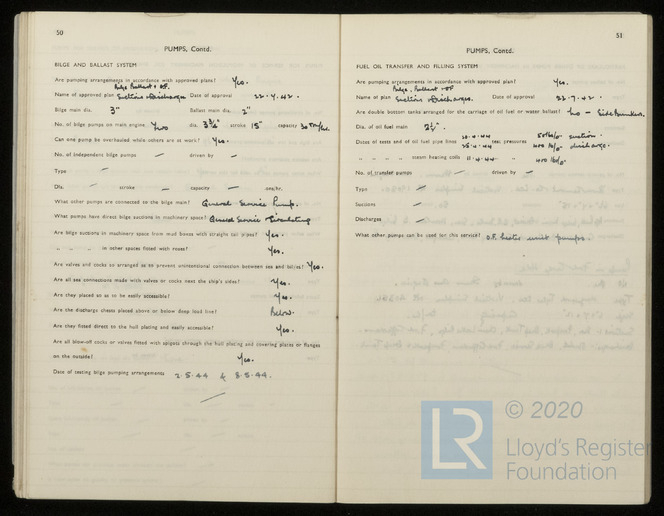 50
PUMPS, Contd.
BILGE AND BALLAST SYSTEM
Are pumping arrangements in accordance with approved plans? Yes.
Bilge Ballast & OF.
Name of approved plan Suction & Discharge Date of approval 22.7.42.
Bilge main dia. 3" Ballast main dia. 2"
No. of bilge pumps on main engine Two dia. 3¾" stroke 15" capacity 30 Ton/hr.
Can one pump be overhauled while others are at work? Yes.
No. of independent bilge pumps — driven by —
Type —
Dia. — stroke — capacity — tons/hr.
What other pumps are connected to the bilge main? General Service Pump.
What pumps have direct bilge suctions in machinery space? General Service & Circulating
Are bilge suctions in machinery space from mud boxes with straight tail pipes? Yes.
„ „ „ in other spaces fitted with roses? Yes.
Are valves and cocks so arranged as to prevent unintentional connection between sea and bilges? Yes.
Are all sea connections made with valves or cocks next the ship's sides? Yes.
Are they placed so as to be easily accessible? Yes.
Are the discharge chests placed above or below deep load line? Below.
Are they fitted direct to the hull plating and easily accessible? Yes.
Are all blow-off cocks or valves fitted with spigots through the hull plating and covering plates or flanges
on the outside? Yes.
Date of testing bilge pumping arrangements 2.5.44 & 8.5.44.
51
PUMPS, Contd.
FUEL OIL TRANSFER AND FILLING SYSTEM
Are pumping arrangements in accordance with approved plan? Yes.
Bilge, Ballast & OF
Name of plan Suction & Discharges. Date of approval 22.7.42.
Are double bottom tanks arranged for the carriage of oil fuel or water ballast? No - Side Bunkers.
Dia. of oil fuel main 2½".
Dates of tests and of oil fuel pipe lines 25.4.44 test pressures 50 lb/o" suction. 400 lb/o" discharge.
„ „ „ „ steam heating coils 11.4.44 „ 400 lb/o"
No. of transfer pumps — driven by —
Type —
Suctions —
Discharges —
What other pumps can be used for this service? O.F. heater unit pumps.
LR
© 2020
Lloyd's Register
Foundation